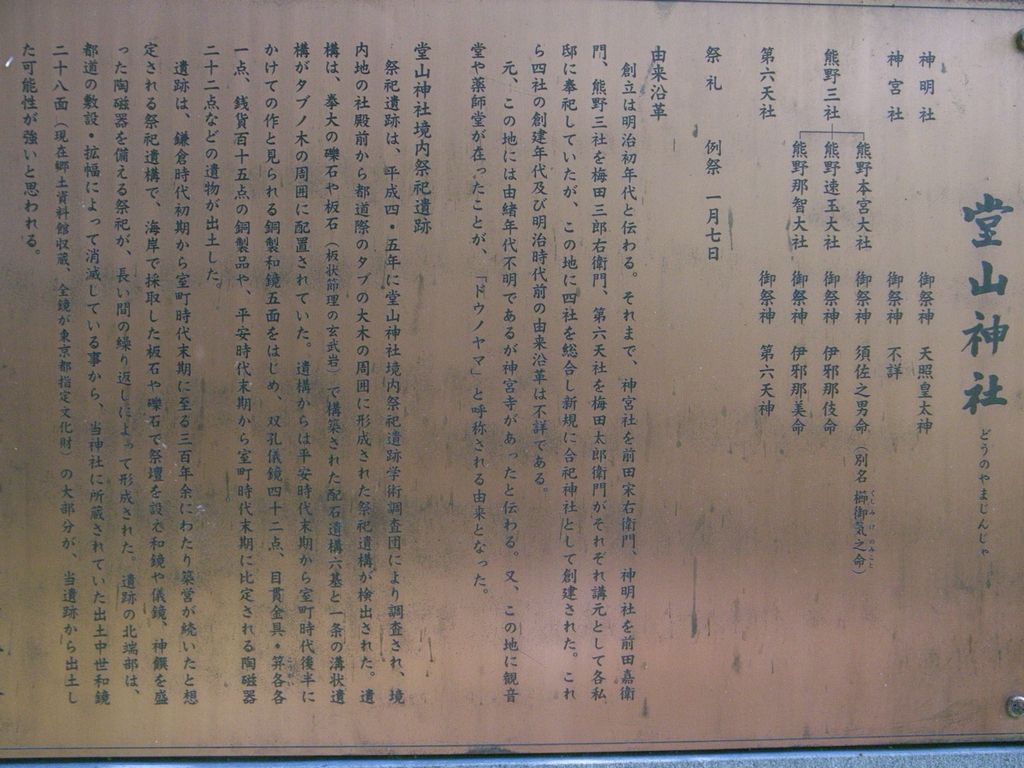 堂山神社 どうのやまじんじゃ
神明社 御祭神 天照皇太神
神宮社 御祭神 不詳
熊野三社
熊野本宮大社 御祭神 須佐之男命(別名 櫛御気之命)
くしみけのみこと
熊野速玉大社 御祭神 伊邪那伎命
熊野那智大社 御祭神 伊邪那美命
第六天社 御祭神 第六天神
祭礼 例祭 一月七日
由来沿革
創立は明治初年代と伝わる。それまで、神宮社を前田宋右衛門、神明社を前田嘉衛
門、熊野三社を梅田三郎右衛門、第六天社を梅田太郎衛門がそれぞれ講元として各私
邸に奉祀していたが、この地に四社を総合し新規に合祀神社として創建された。これ
ら四社の創建年代及び明治時代前の由来沿革は不詳である。
元、この地には由緒年代不明であるが神宮寺があったと伝わる。又、この地に観音
堂や薬師堂が在ったことが、「ドウノヤマ」と呼称される由来となった。
堂山神社境内祭祀遺跡
祭祀遺跡は、平成四・五年に堂山神社境内祭祀遺跡学術調査団により調査され、境
内地の社殿前から都道際のタブの大木の周囲に形成された祭祀遺構が検出された。遺
構は、拳大の礫石や板石(板状節理の玄武岩)で構築された配石遺構六基と一条の溝状遺
構がタブノ木の周囲に配置されていた。遺構からは平安時代末期から室町時代後半に
かけての作と見られる銅製和鏡五面をはじめ、双孔儀鏡四十二点、目貫金具・笄各各
こうがい
一点、銭貨百十五点の銅製品や、平安時代末期から室町時代末期に比定される陶磁器
二十二点などの遺物が出土した。
遺跡は、鎌倉時代初期から室町時代末期に至る三百年余にわたり築営が続いたと想
定される祭祀遺構で、海岸で採取した板石や礫石で祭壇を設え和鏡や儀鏡、神饌を盛
った陶磁器を備える祭祀が、長い間の繰り返しによって形成された。遺跡の北端部は、
都道の敷設・拡幅によって消滅している事から、当神社に所蔵されていた出土中世和鏡
二十八面(現在郷土資料館収蔵、全鏡が東京都指定文化財)の大部分が、当遺跡から出土し
た可能性が強いと思われる。